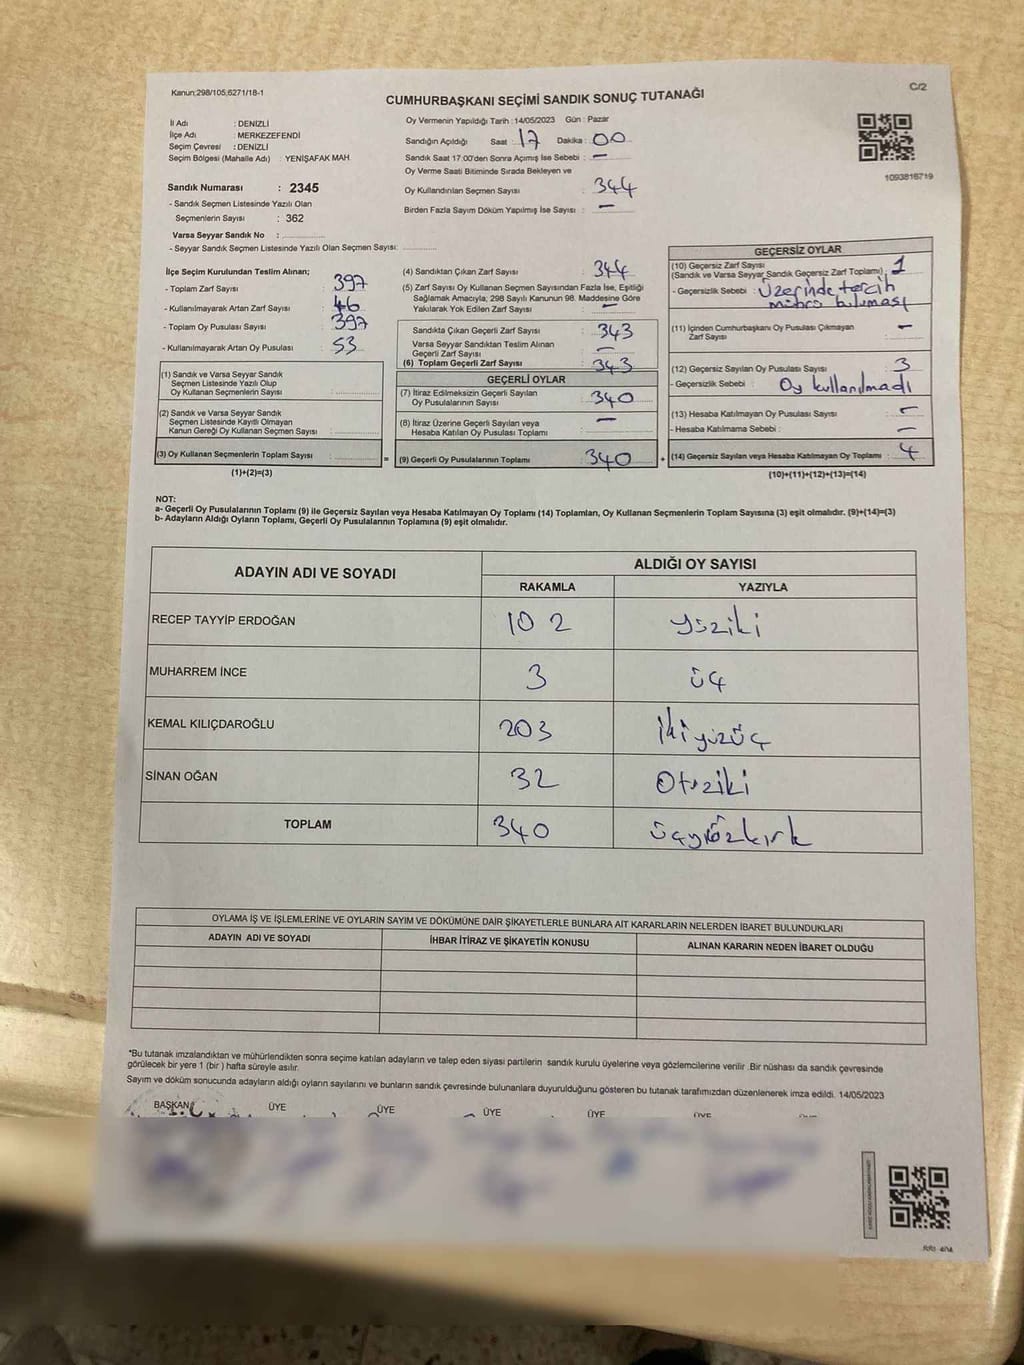 Kanun;298/105,6271/18-1
C/2
CUMHURBAŞKANI SEÇİMİ SANDIK SONUÇ TUTANAĞI
İl Adı : DENİZLİ
İlçe Adı : MERKEZEFENDİ
Seçim Çevresi : DENİZLİ
Seçim Bölgesi (Mahalle Adı) : YENİŞAFAK MAH.
Sandık Numarası : 2345
- Sandık Seçmen Listesinde Yazılı Olan
Seçmenlerin Sayısı : 362
Varsa Seyyar Sandık No :
- Seyyar Sandık Seçmen Listesinde Yazılı Olan Seçmen Sayısı:
Oy Vermenin Yapıldığı Tarih : 14/05/2023 Gün : Pazar
Sandığın Açıldığı Saat : 17 Dakika : 00
Sandık Saat 17:00'den Sonra Açımış İse Sebebi : –
Oy Verme Saati Bitiminde Sırada Bekleyen ve
Oy Kullandırılan Seçmen Sayısı : 344
Birden Fazla Sayım Döküm Yapılmış İse Sayısı : –
1093816719
İlçe Seçim Kurulundan Teslim Alınan;
- Toplam Zarf Sayısı : 397
- Kullanılmayarak Artan Zarf Sayısı : 46
- Toplam Oy Pusulası Sayısı : 397
- Kullanılmayarak Artan Oy Pusulası : 53
(1) Sandık ve Varsa Seyyar Sandık
Seçmen Listesinde Yazılı Olup
Oy Kullanan Seçmenlerin Sayısı :
(2) Sandık ve Varsa Seyyar Sandık
Seçmen Listesinde Kayıtlı Olmayan
Kanun Gereği Oy Kullanan Seçmen Sayısı :
(3) Oy Kullanan Seçmenlerin Toplam Sayısı :
(1)+(2)=(3)
(4) Sandıktan Çıkan Zarf Sayısı : 344
(5) Zarf Sayısı Oy Kullanan Seçmen Sayısından Fazla İse, Eşitliği
Sağlamak Amacıyla; 298 Sayılı Kanunun 98. Maddesine Göre
Yakılarak Yok Edilen Zarf Sayısı : –
Sandıkta Çıkan Geçerli Zarf Sayısı : 343
Varsa Seyyar Sandıktan Teslim Alınan
Geçerli Zarf Sayısı : –
(6) Toplam Geçerli Zarf Sayısı : 343
GEÇERLİ OYLAR
(7) İtiraz Edilmeksizin Geçerli Sayılan
Oy Pusulalarının Sayısı : 340
(8) İtiraz Üzerine Geçerli Sayılan veya
Hesaba Katılan Oy Pusulası Toplamı : –
= (9) Geçerli Oy Pusulalarının Toplamı : 340 +
GEÇERSİZ OYLAR
(10) Geçersiz Zarf Sayısı
(Sandık ve Varsa Seyyar Sandık Geçersiz Zarf Toplamı) : 1
- Geçersizlik Sebebi : Üzerinde tercih
mührü bulunması
(11) İçinden Cumhurbaşkanı Oy Pusulası Çıkmayan
Zarf Sayısı : –
(12) Geçersiz Sayılan Oy Pusulası Sayısı : 3
- Geçersizlik Sebebi : Oy kullanılmadı
(13) Hesaba Katılmayan Oy Pusulası Sayısı : –
- Hesaba Katılmama Sebebi : –
(14) Geçersiz Sayılan veya Hesaba Katılmayan Oy Toplamı : 4
(10)+(11)+(12)+(13)=(14)
NOT:
a- Geçerli Oy Pusulalarının Toplamı (9) ile Geçersiz Sayılan veya Hesaba Katılmayan Oy Toplamı (14) Toplamları, Oy Kullanan Seçmenlerin Toplam Sayısına (3) eşit olmalıdır. (9)+(14)=(3)
b- Adayların Aldığı Oyların Toplamı, Geçerli Oy Pusulalarının Toplamına (9) eşit olmalıdır.
ADAYIN ADI VE SOYADI ALDIĞI OY SAYISI
RAKAMLA YAZIYLA
RECEP TAYYİP ERDOĞAN 102 yüziki
MUHARREM İNCE 3 üç
KEMAL KILIÇDAROĞLU 203 İkiyüzüç
SİNAN OĞAN 32 Otuziki
TOPLAM 340 üçyüzkırk
OYLAMA İŞ VE İŞLEMLERİNE VE OYLARIN SAYIM VE DÖKÜMÜNE DAİR ŞİKAYETLERLE BUNLARA AİT KARARLARIN NELERDEN İBARET BULUNDUKLARI
ADAYIN ADI VE SOYADI İHBAR İTİRAZ VE ŞİKAYETİN KONUSU ALINAN KARARIN NEDEN İBARET OLDUĞU
*Bu tutanak imzalandıktan ve mühürlendikten sonra seçime katılan adayların ve talep eden siyasi partilerin sandık kurulu üyelerine veya gözlemcilerine verilir. Bir nüshası da sandık çevresinde
görülecek bir yere 1 (bir) hafta süreyle asılır.
Sayım ve döküm sonucunda adayların aldığı oyların sayılarını ve bunların sandık çevresinde bulunanlara duyurulduğunu gösteren bu tutanak tarafımızdan düzenlenerek imza edildi. 14/05/2023
BAŞKAN ÜYE ÜYE ÜYE ÜYE ÜYE